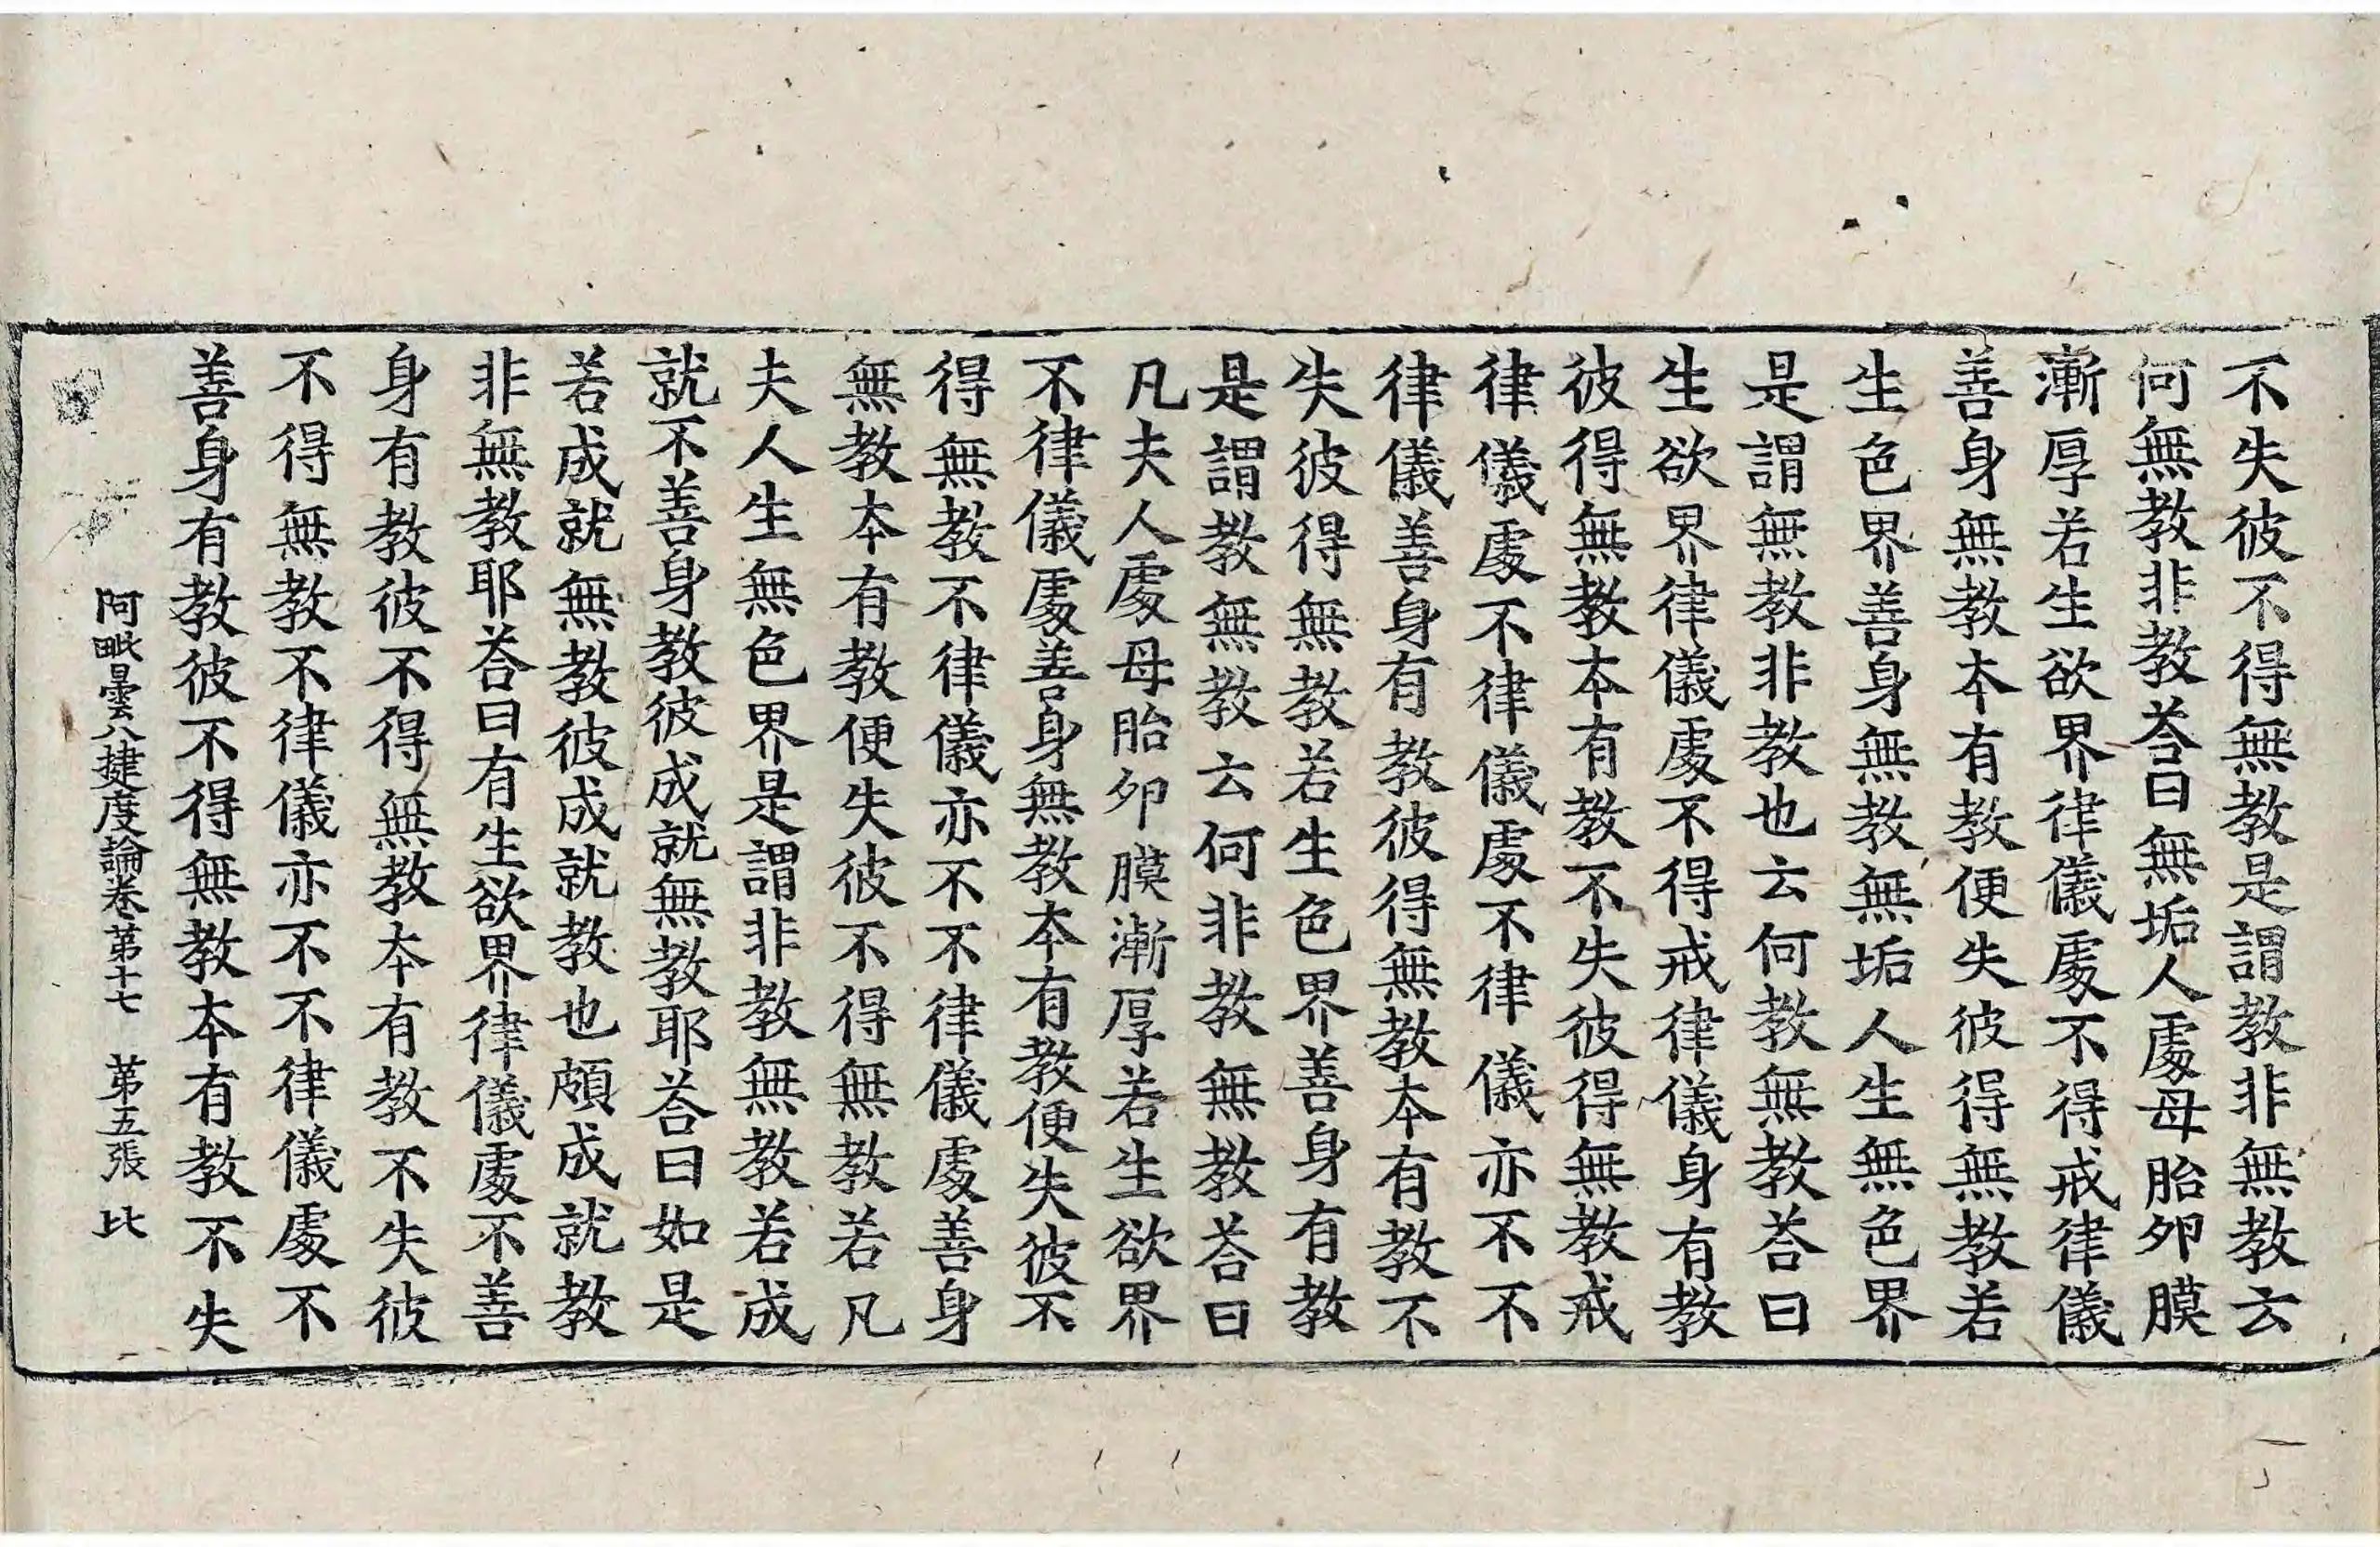 不失彼不得無教是謂教非無教云
何無教非教荅曰無垢人處母胎夘膜
漸厚若生欲界律儀處不得戒律儀
善身無教本有教便失彼得無教若
生色界善身無教無垢人生無色界
是謂無教非教也云何教無教荅曰
生欲界律儀處不得戒律儀身有教
彼得無教本有教不失彼得無教戒
律儀處不律儀處不律儀亦不不
律儀善身有教彼得無教本有教不
失彼得無教若生色界善身有教
是謂教無教云何非教無教荅曰
凡夫人處母胎夘膜漸厚若生欲界
不律儀處善身無教本有教便失彼不
得無教不律儀亦不不律儀處善身
無教本有教便失彼不得無教若凡
夫人生無色界是謂非教無教若成
就不善身教彼成就無教耶荅曰如是
若成就無教彼成就教也頗成就教
非無教耶荅曰有生欲界律儀處不善
身有教彼不得無教本有教不失彼
不得無教不律儀亦不不律儀處不
善身有教彼不得無教本有教不失
阿毗曇八揵度論卷第十七 第五張 比